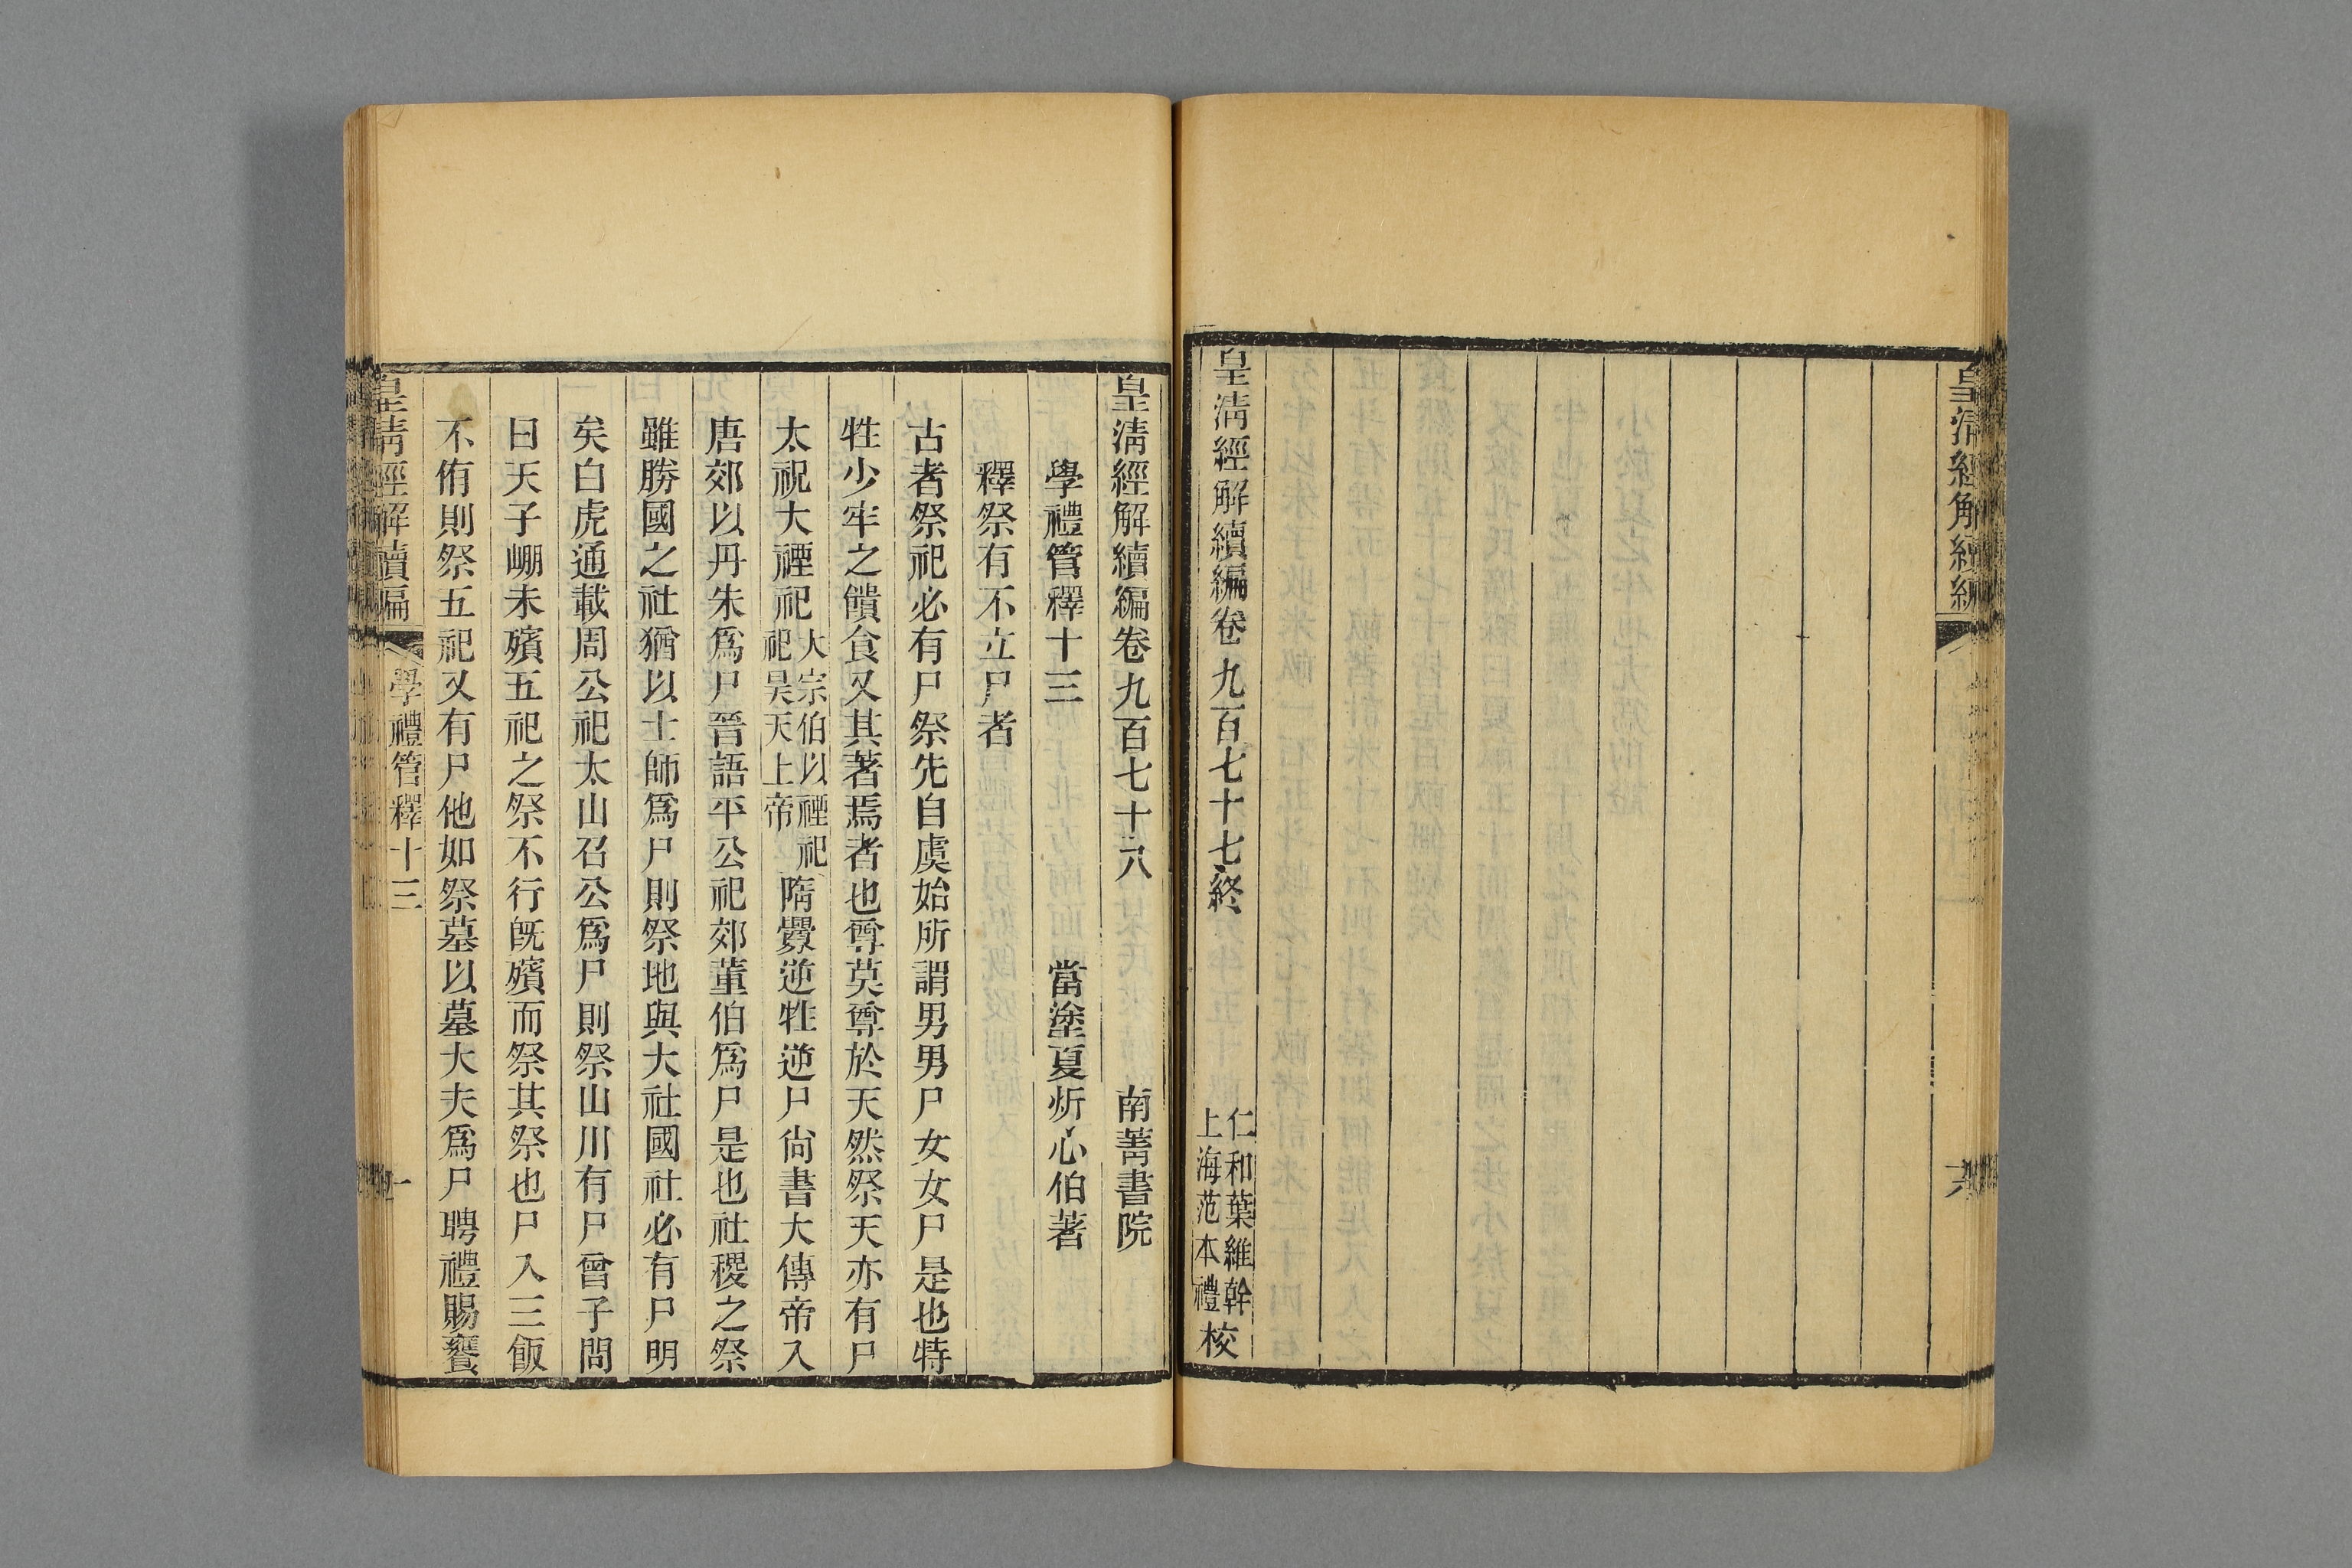 皇清經解續編
六
皇清經解續編卷九百七十七終
仁和葉維幹
上海范本禮
校
皇清經解續編卷九百七十八
南菁書院
學禮管釋十三
當塗夏炘心伯著
釋祭有不立尸者
古者祭祀必有尸祭先自虞始所謂男男尸女女尸是也特
牲少牢之饋食又其著焉者也尊莫尊於天然祭天亦有尸
太祝大禋祀
大宗伯以禋祀
祀昊天上帝
隋釁逆牲逆尸尙書大傳帝入
唐郊以丹朱爲尸晉語平公祀郊董伯爲尸是也社稷之祭
雖勝國之社猶以士師爲尸則祭地與大社國社必有尸明
矣白虎通載周公祀太山召公爲尸則祭山川有尸曾子問
曰天子崩未殯五祀之祭不行旣殯而祭其祭也尸入三飯
不侑則祭五祀又有尸他如祭墓以墓大夫爲尸聘禮賜饔
皇清經解續編
學禮管釋十三
一